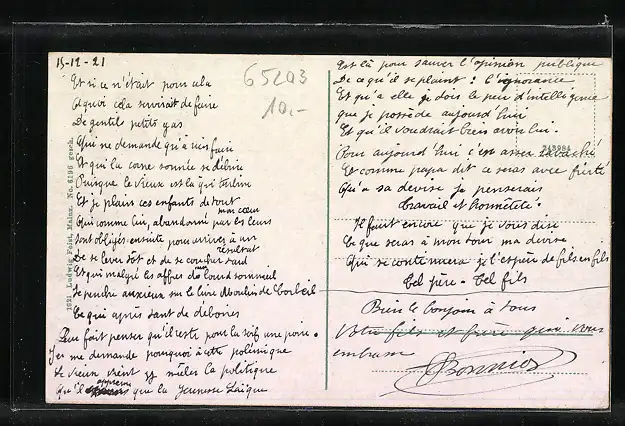 15-12-21
65203
10.-
Et si ce n'était pour cela
A quoi cela servirait de faire
De gentils petits gas
Qui ne demande qu'à
Et qui la corne sonnée se débine
Puisque le vieux est là qui turbine
Et je plains ces enfants de tout mon cœur
Qui comme lui, abandonné par les leurs
Sont obligés ensuite pour arriver à un résultat
De se lever tôt et de se coucher tard
Et qui malgré les affres du lourd sommeil
Se pendre anxieux sur le livre Moulin de Corbeil
Ce qui après tant de
Peux fait penser qu'il reste pour la soif une poire.
Je me demande pourquoi à cette polémique
Le vieux vient y mêler la politique
Qu'il apprenne que la Jeunesse Laïque
1921 Ludwig Feist, Mainz. No. 6196 gesch.
Est là pour sauver l'opinion publique
De ce qu'il se plaint : l'ignorance
Et qu'à elle je dois le peu d'intelligence
que je possède aujourd'hui
Et qu'il voudrait bien avoir lui.
243984
Pour aujourd'hui c'est assez
Et comme papa dit ce seras avec fierté
Qu'à sa devise je penserais
Travail et honnêteté.
Il faut encore que je vous dise
Ce que seras à mon tour ma devise
Qui se continuera je l'espère de fils en fils
Tel père. Tel fils
Bien le bonjour à tous
Votre fils et frère qui vous
embrasse
Bonnior